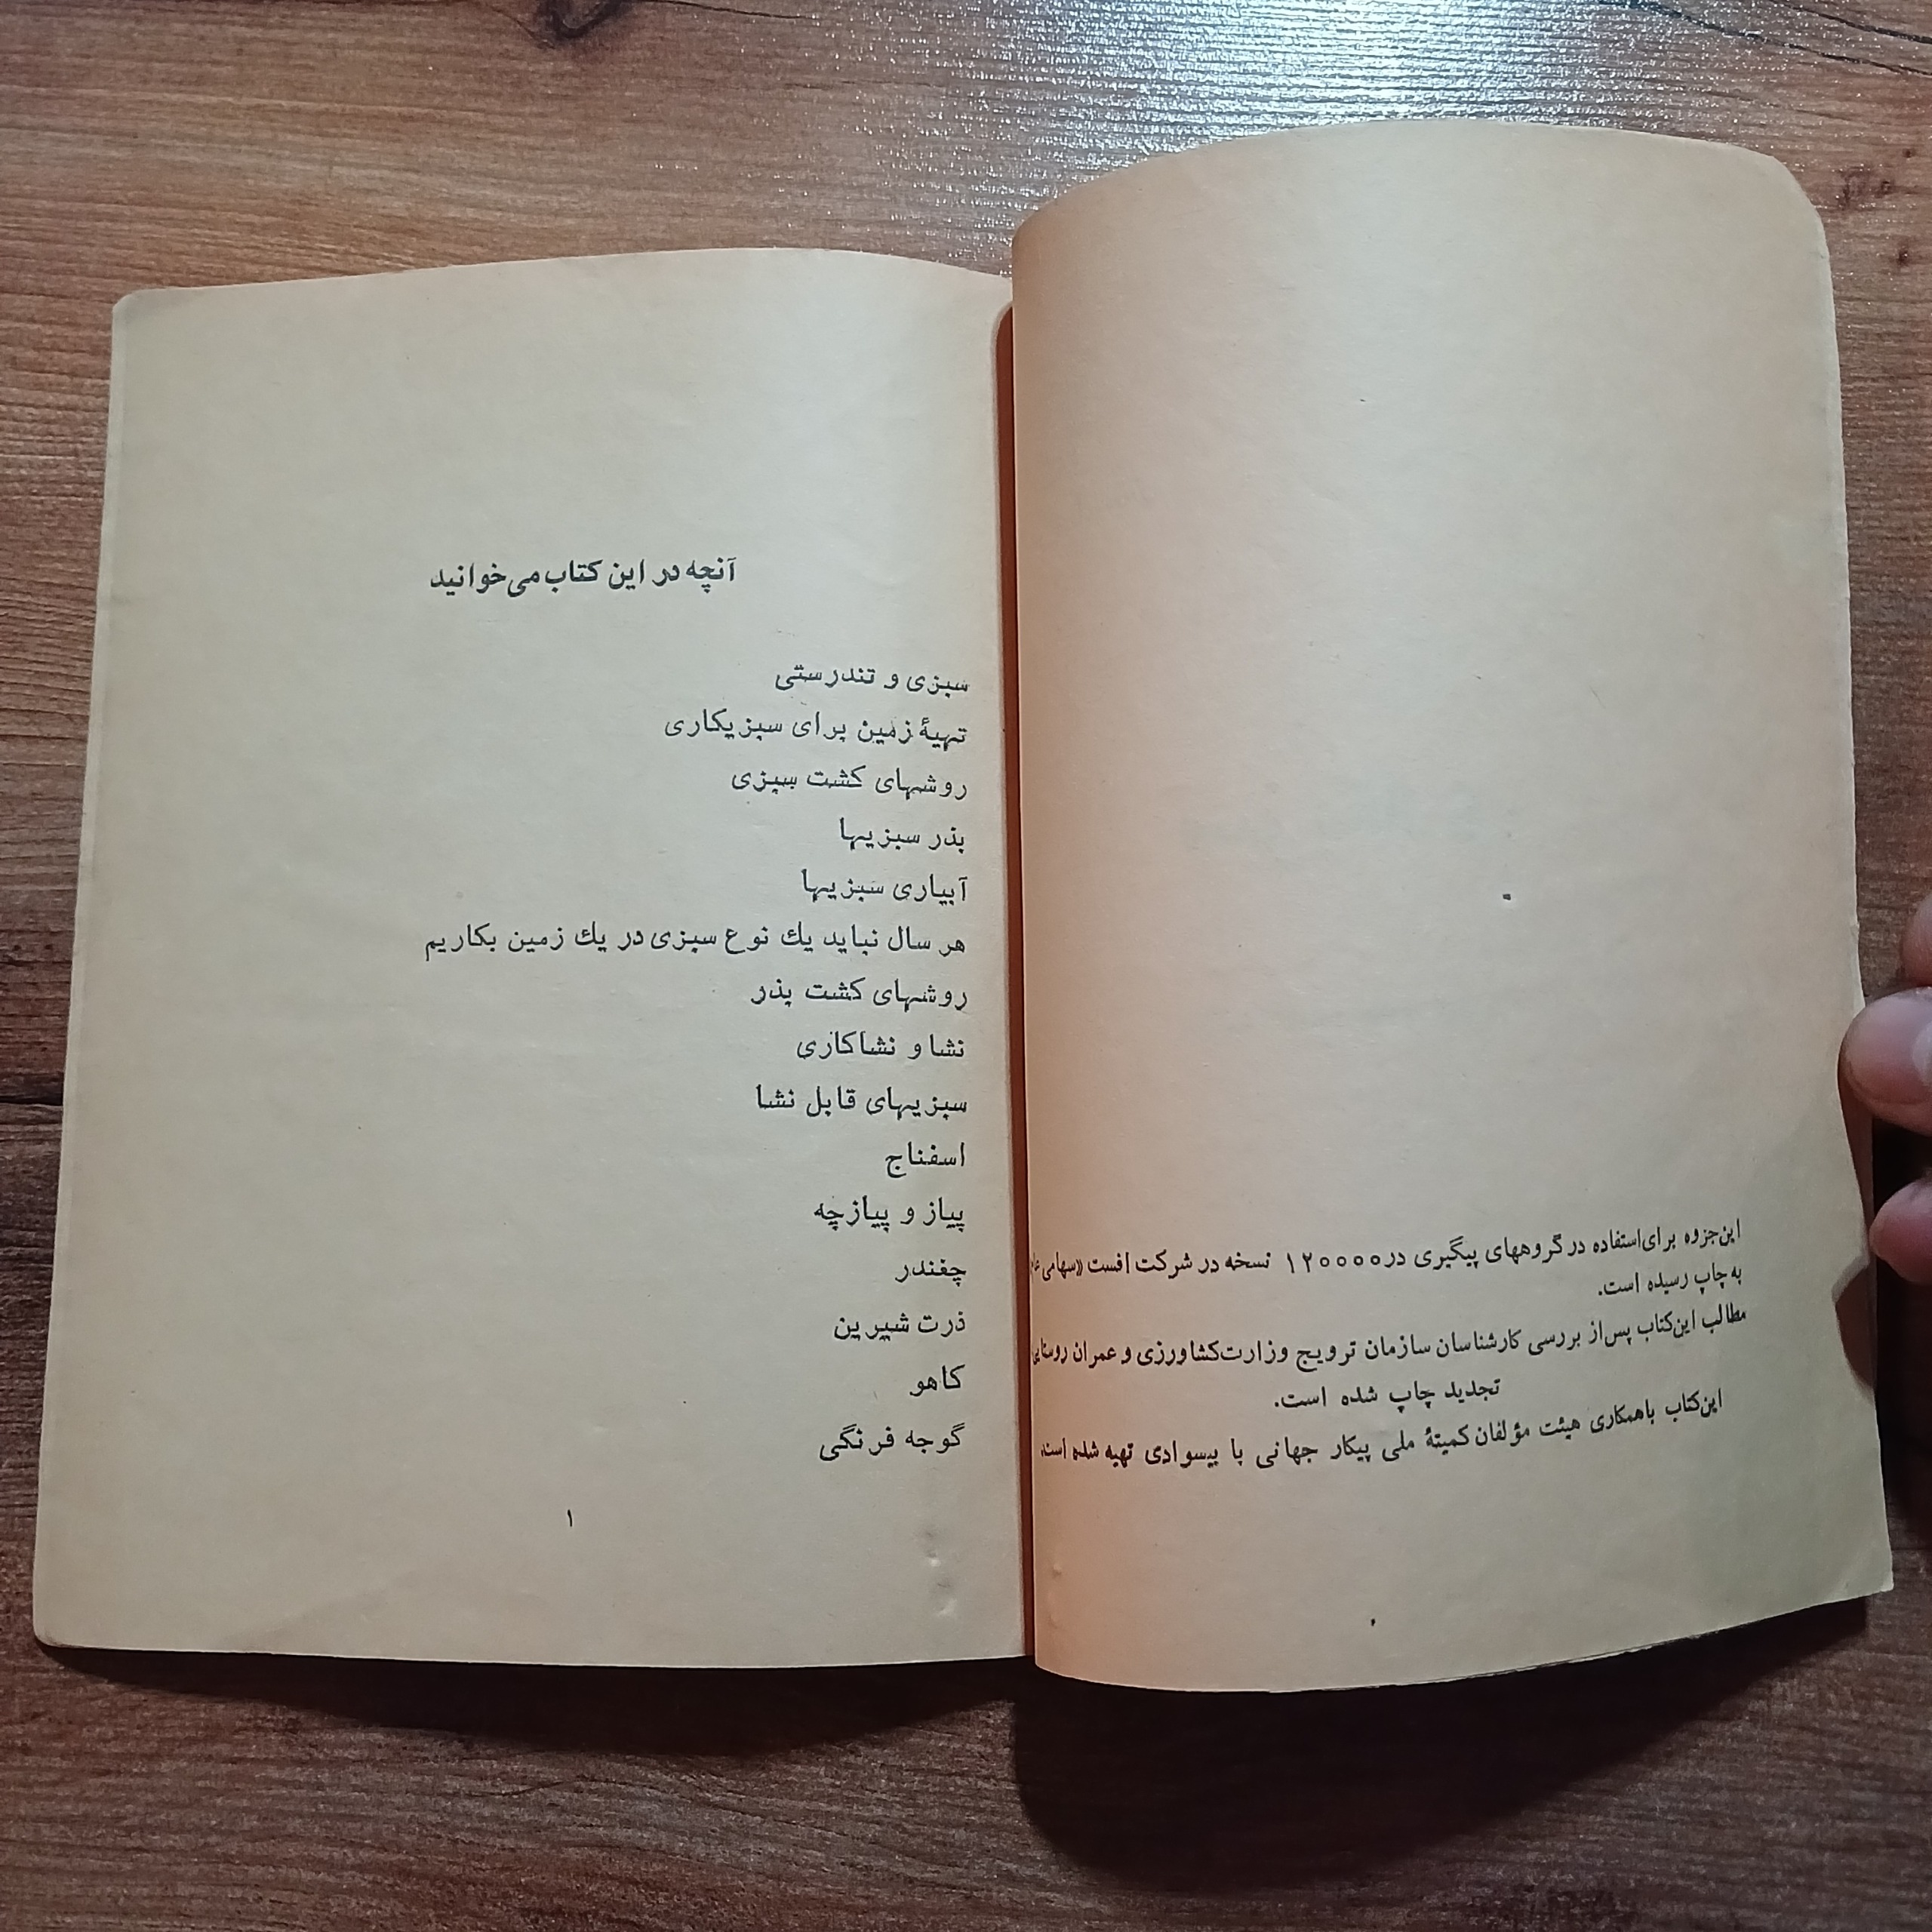 این‌جزوه برای‌استفاده در گروههای پیگیری در ۱۲۰۰۰۰ نسخه در شرکت افست «سهامی
به چاپ رسیده است.
مطالب این‌کتاب پس‌از بررسی کارشناسان سازمان ترویج وزارت‌کشاورزی و عمران روستایی
تجدید چاپ شده است.
این‌کتاب باهمکاری هیئت مؤلفان کمیتهٔ ملی پیکار جهانی با بیسوادی تهیه شده است.
آنچه در این کتاب می‌خوانید
سبزی و تندرستی
تهیهٔ زمین برای سبزیکاری
روشهای کشت سبزی
بذر سبزیها
آبیاری سبزیها
هر سال نباید یك نوع سبزی در یك زمین بکاریم
روشهای کشت بذر
نشا و نشاکاری
سبزیهای قابل نشا
اسفناج
پیاز و پیازچه
چغندر
ذرت شیرین
کاهو
گوجه فرنگی
۱